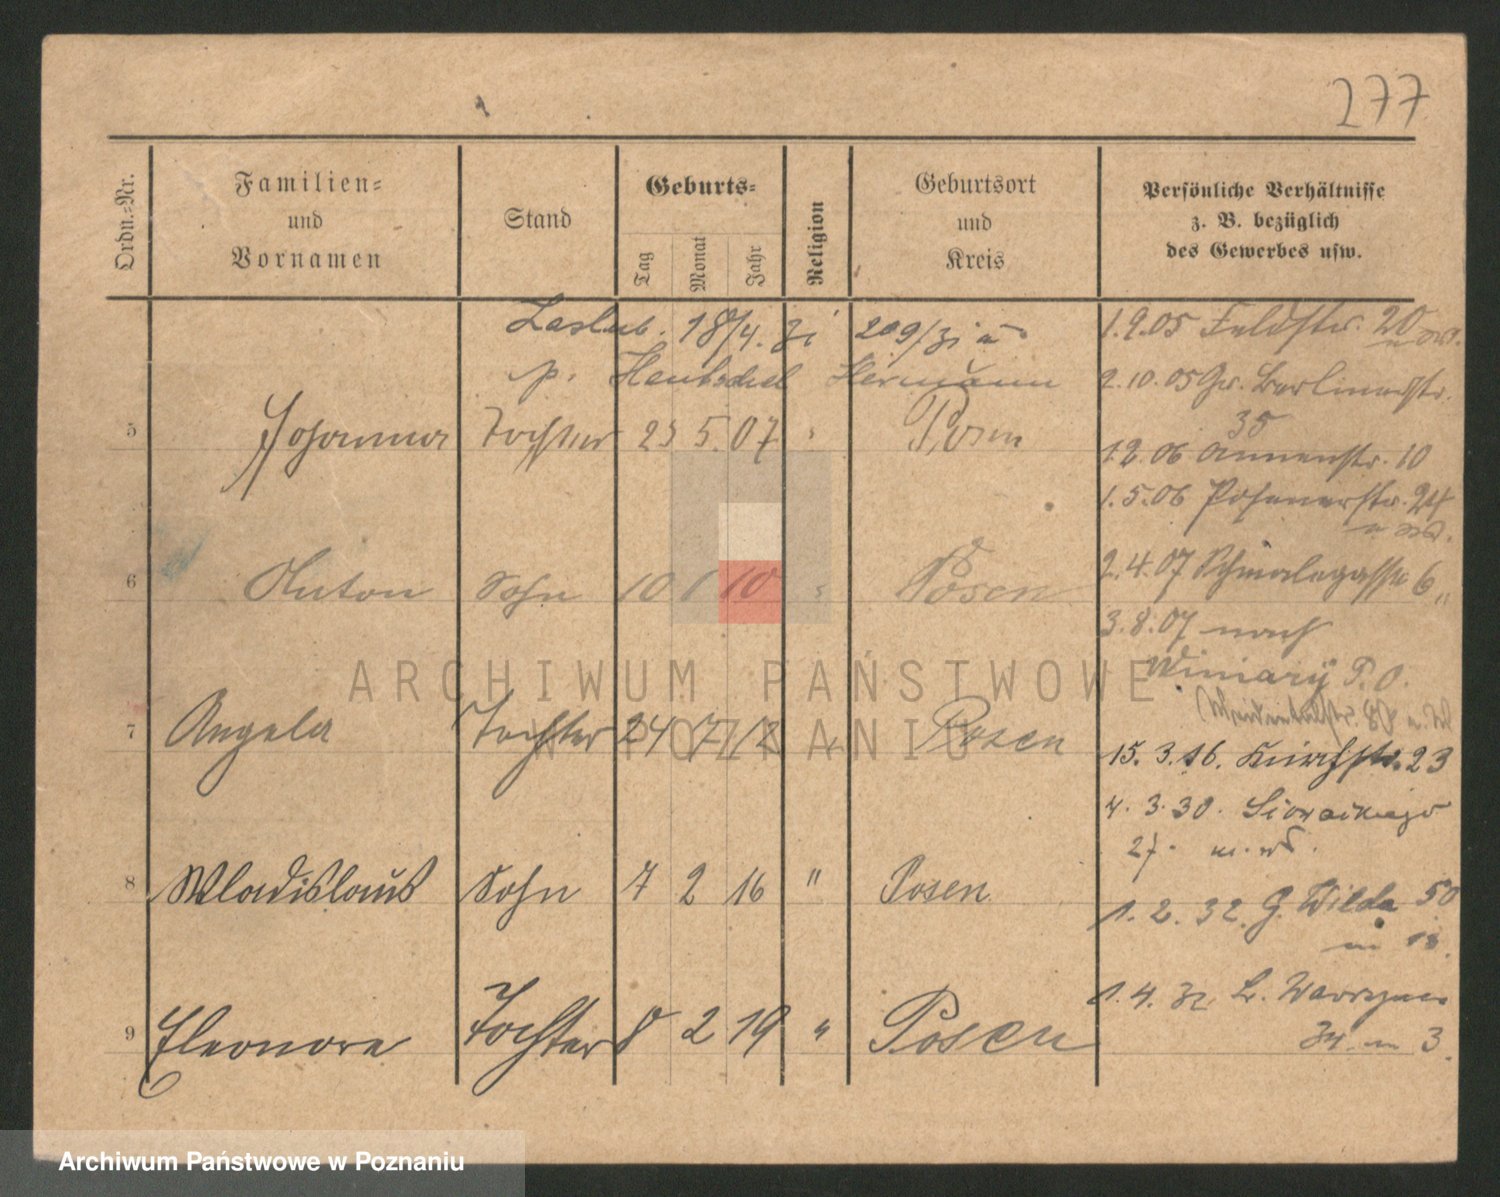 277
Ordn.=Nr.
Familien=
und
Vornamen
Stand
Geburts=
Tag
Monat
Jahr
Religion
Geburtsort
und
Kreis
Persönliche Verhältnisse
z. B. bezüglich
des Gewerbes usw.
18/4. 31 209/31
p. Hentschel Hermann
5 Johanna Tochter 23 5. 07 " Posen
6 Anton Sohn 10 1 10 " Posen
7 Angela Tochter 24 7 12 " Posen
8 Wladislaus Sohn 7 2 16 " Posen
9 Eleonore Tochter 8 2 19 " Posen
1.9.05 Feldstr. 20
2.10.05 Gr. Berlinerstr.
35
1.2.06 Annenstr. 10
1.5.06 Posenerstr. 24
2.4.07 Schmalegasse 6
3.8.07 nach
Winiary P. O.
15. 3. 16. Kirchstr. 23
4. 3. 30.
27.
1. 2. 32. G. Wilda 50
m 18.
1. 4. 32.
m 3.
ARCHIWUM PAŃSTWOWE
W POZNANIU
Archiwum Państwowe w Poznaniu